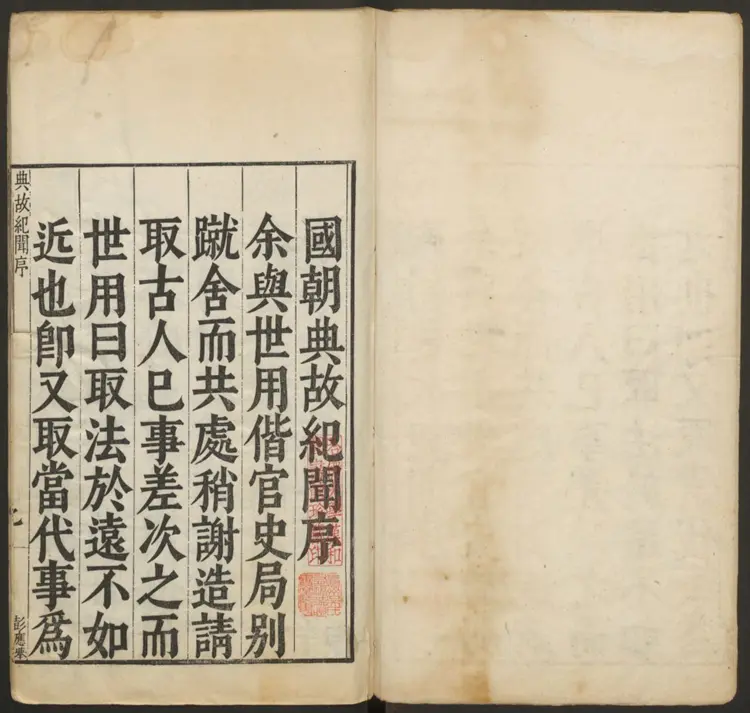 國朝典故紀聞序
余與世用偕官史局别
蹴舍而共處稍謝造請
取古人已事差次之而
世用曰取法於遠不如
近也卽又取當代事爲
典故紀聞序
彭應乘